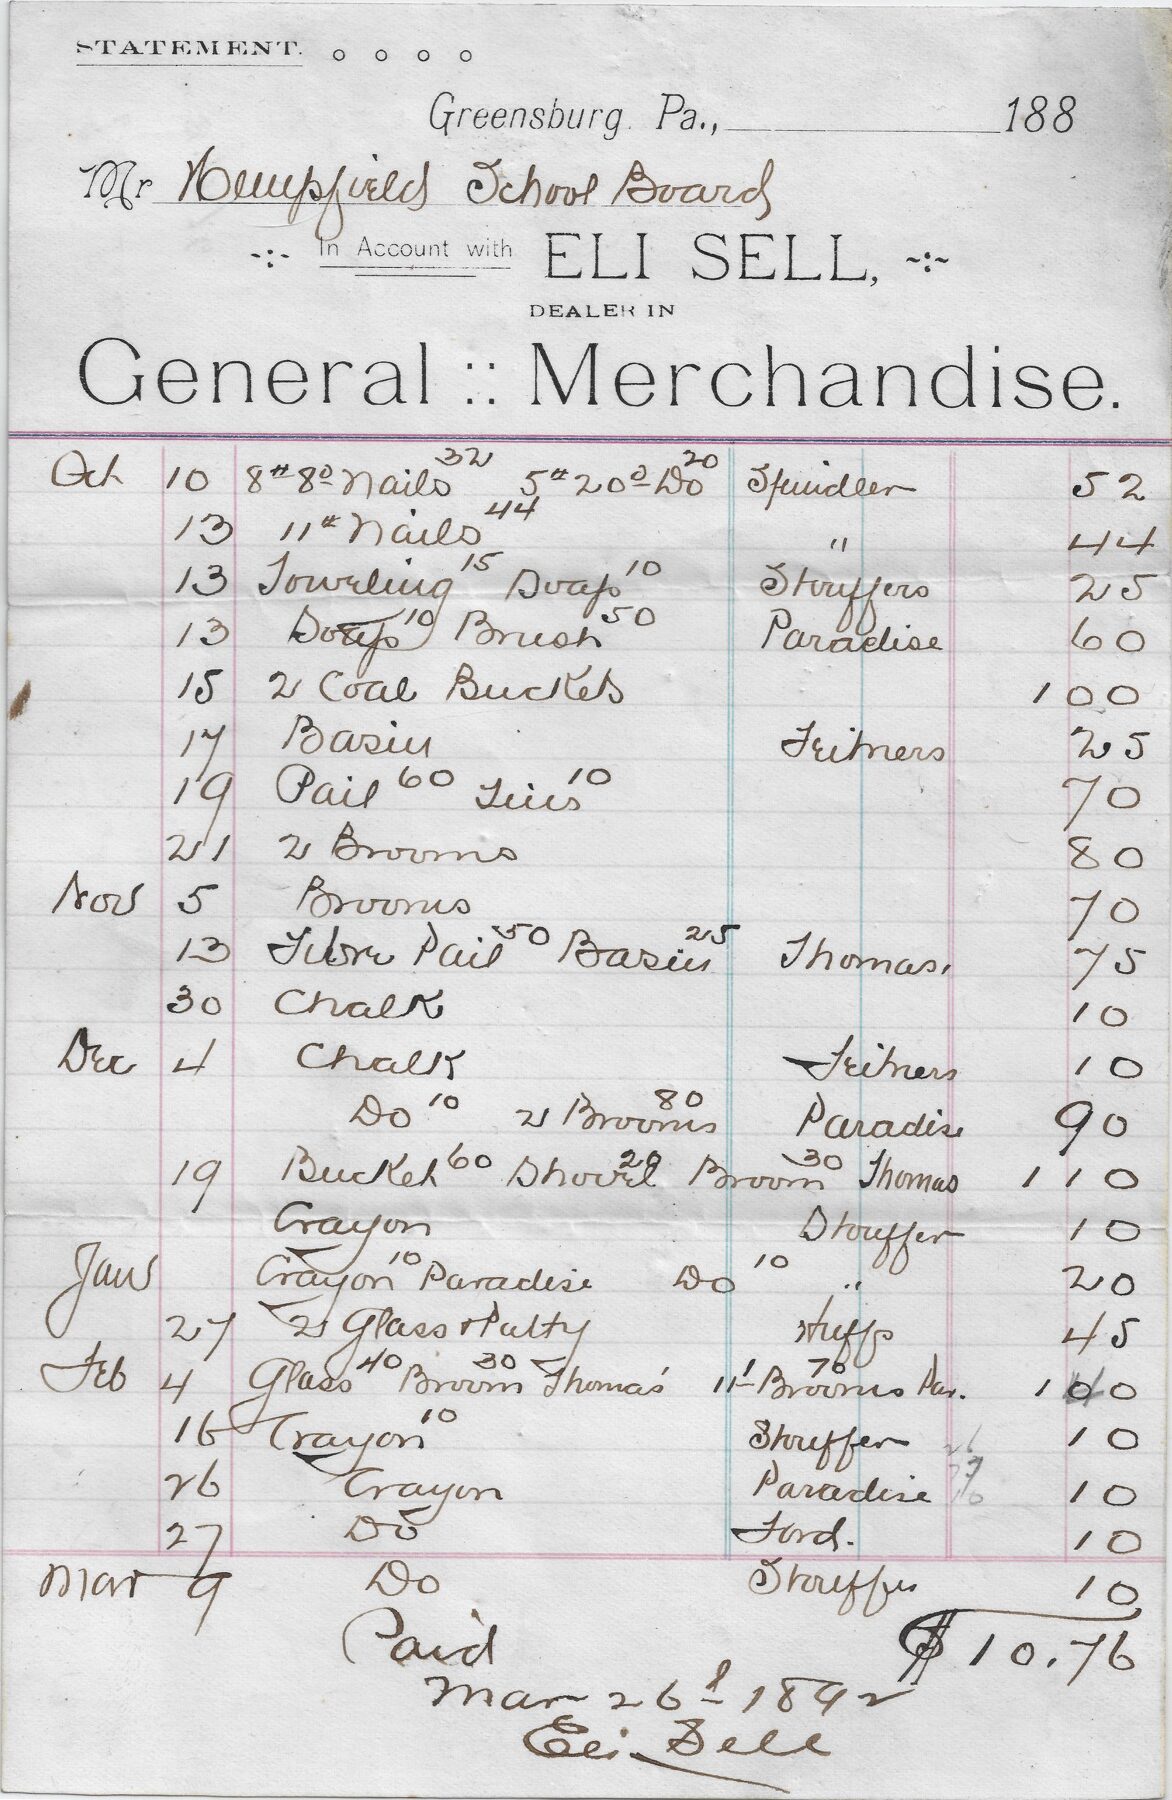 STATEMENT.
Greensburg Pa., 188
Mr Hempfield School Board
In Account with ELI SELL,
DEALER IN
General :: Merchandise.
Oct 10 8# 8d Nails 32 5# 20d Do 20 Spindler 52
13 11# Nails 44 " 44
13 Toweling 15 Soap 10 Stouffers 25
13 Soap 10 Brush 50 Paradise 60
15 2 Coal Buckets 1 00
17 Basin Feitners 25
19 Pail 60 Tins 10 70
21 2 Brooms 80
Nov 5 Brooms 70
13 Fibre Pail 50 Basin 25 Thomas. 75
30 Chalk 10
Dec 4 Chalk Feitners 10
Do 10 2 Brooms 80 Paradise 90
19 Bucket 60 Shovel 20 Broom 30 Thomas 1 10
Crayon Stouffer 10
Jan Crayon 10 Paradise Do 10 " 20
27 2 Glass & Putty Huffs 45
Feb 4 Glass 40 Broom 30 Thomas Brooms 70 Par. 1 00
16 Crayon 10 Stouffer 10
26 Crayon Paradise 10
27 Do Ford. 10
Mar 9 Do Stouffer 10
Paid $10.76
Mar 26t 1892
Eli Sell